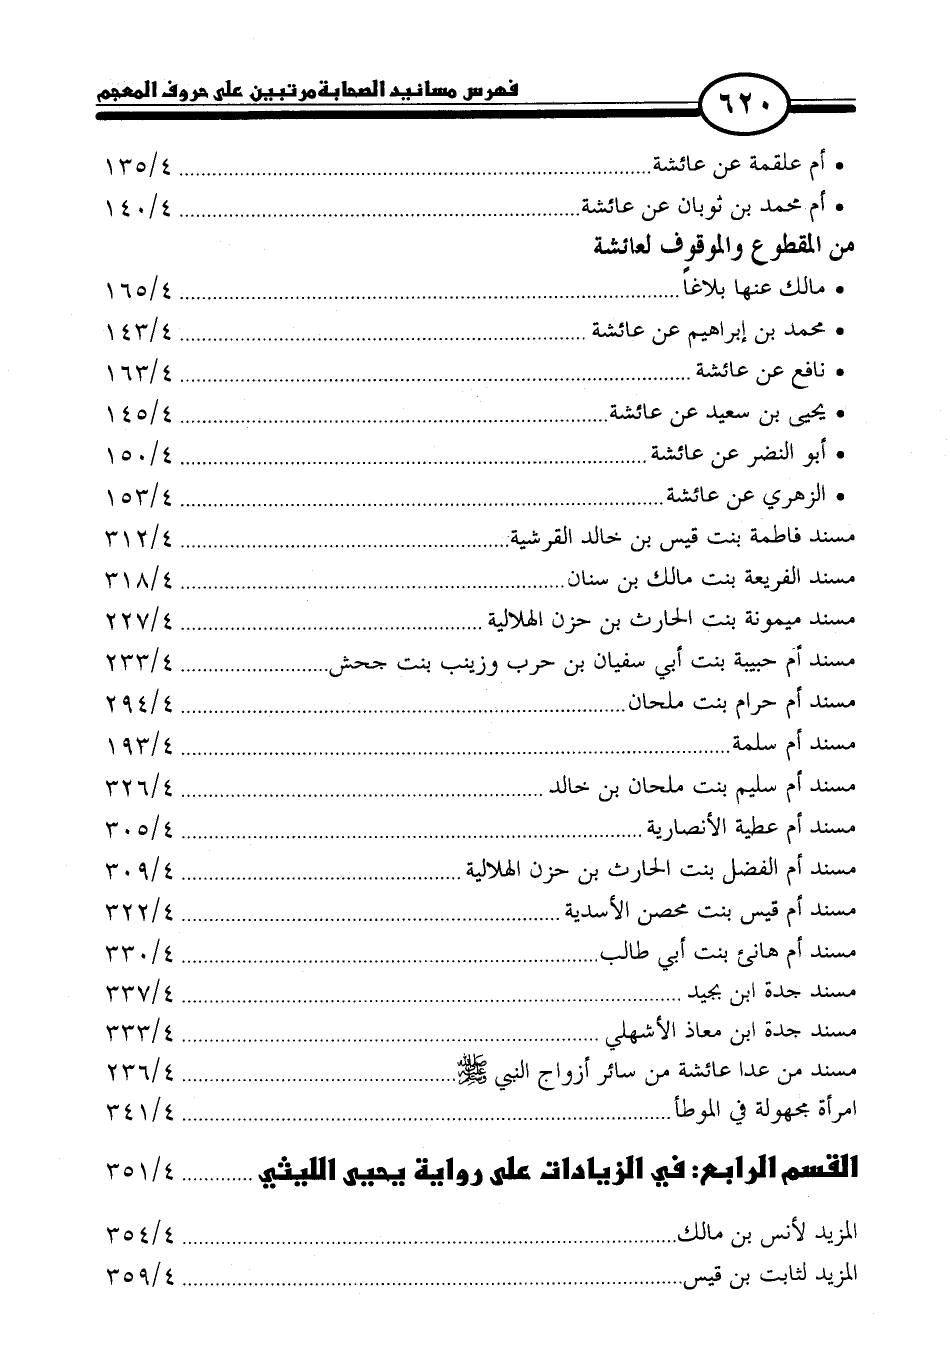 ٦٢٠ فهرس مسانيد الصحابة مرتبين على حروف المعجم
• أم علقمة عن عائشة ........ ١٣٥/٤
• أم محمد بن ثوبان عن عائشة ........ ١٤٠/٤
من المقطوع والموقوف لعائشة
• مالك عنها بلاغاً ........ ١٦٥/٤
• محمد بن إبراهيم عن عائشة ........ ١٤٣/٤
• نافع عن عائشة ........ ١٦٣/٤
• يحيى بن سعيد عن عائشة ........ ١٤٥/٤
• أبو النضر عن عائشة ........ ١٥٠/٤
• الزهري عن عائشة ........ ١٥٣/٤
مسند فاطمة بنت قيس بن خالد القرشية ........ ٣١٢/٤
مسند الفريعة بنت مالك بن سنان ........ ٣١٨/٤
مسند ميمونة بنت الحارث بن حزن الهلالية ........ ٢٢٧/٤
مسند أم حبيبة بنت أبي سفيان بن حرب وزينب بنت جحش ........ ٢٣٣/٤
مسند أم حرام بنت ملحان ........ ٢٩٤/٤
مسند أم سلمة ........ ١٩٣/٤
مسند أم سليم بنت ملحان بن خالد ........ ٣٢٦/٤
مسند أم عطية الأنصارية ........ ٣٠٥/٤
مسند أم الفضل بنت الحارث بن حزن الهلالية ........ ٣٠٩/٤
مسند أم قيس بنت محصن الأسدية ........ ٣٢٢/٤
مسند أم هانئ بنت أبي طالب ........ ٣٣٠/٤
مسند جدة ابن بجيد ........ ٣٣٧/٤
مسند جدة ابن معاذ الأشهلي ........ ٣٣٣/٤
مسند من عدا عائشة من سائر أزواج النبي ﷺ ........ ٢٣٦/٤
امرأة مجهولة في الموطأ ........ ٣٤١/٤
القسم الرابع: في الزيادات على رواية يحيى الليثي ........ ٣٥١/٤
المزيد لأنس بن مالك ........ ٣٥٤/٤
المزيد لثابت بن قيس ........ ٣٥٩/٤